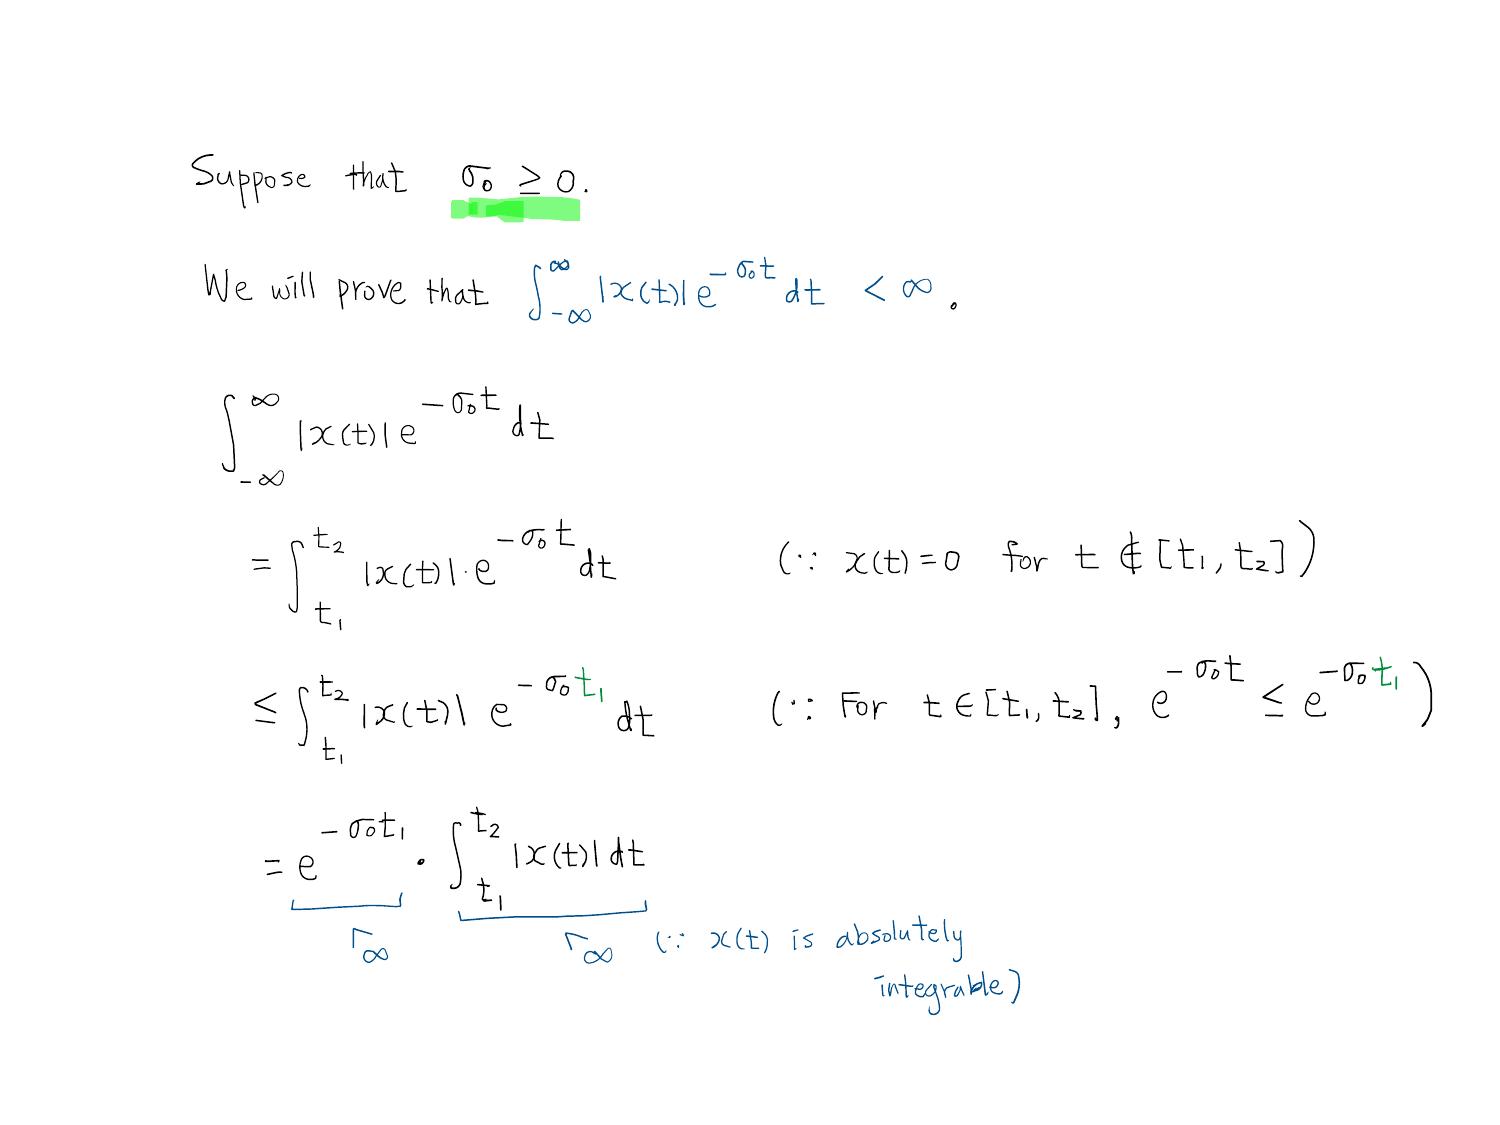 Suppose that σ₀ ≥ 0.
We will prove that ∫_{-∞}^{∞} |x(t)| e^{-σ₀t} dt < ∞.
∫_{-∞}^{∞} |x(t)| e^{-σ₀t} dt
= ∫_{t₁}^{t₂} |x(t)|·e^{-σ₀t} dt (∵ x(t) = 0 for t ∉ [t₁, t₂])
≤ ∫_{t₁}^{t₂} |x(t)| e^{-σ₀t₁} dt (∵ For t ∈ [t₁, t₂], e^{-σ₀t} ≤ e^{-σ₀t₁})
= e^{-σ₀t₁} · ∫_{t₁}^{t₂} |x(t)| dt
∞ ∞ (∵ x(t) is absolutely
integrable)